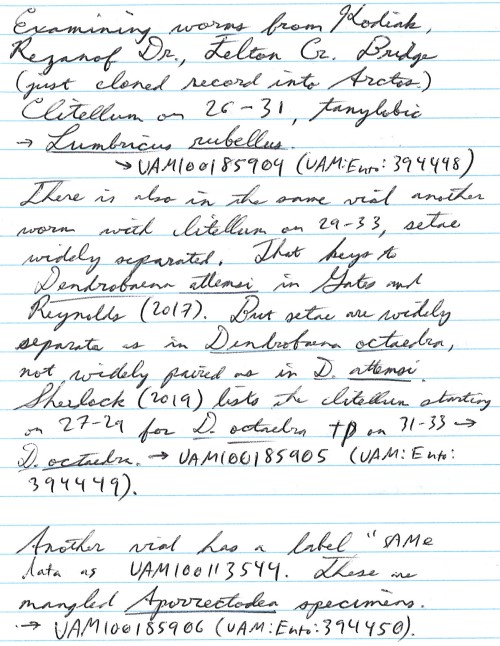 Examining worms from Kodiak,
Rezanof Dr., Felton Cr. Bridge
(just cloned record into Arctos.)
Clitellum on 26-31, tanylobic
→ Lumbricus rubellus.
→ UAM100185904 (UAM:Ento:394448)
There is also in the same vial another
worm with clitellum on 29-33, setae
widely separated. That keys to
Dendrobaena attemsi in Gates and
Reynolds (2017). But setae are widely
separate as in Dendrobaena octaedra,
not widely paired as in D. attemsi.
Sherlock (2019) lists the clitellum starting
on 27-29 for D. octaedra tp on 31-33 →
D. octaedra. → UAM100185905 (UAM:Ento:
394449).
Another vial has a label "SAME
data as UAM100113544. These are
mangled Aporrectodea specimens.
→ UAM100185906 (UAM:Ento:394450).